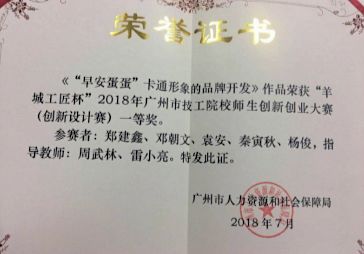 荣誉证书
《“早安蛋蛋”卡通形象的品牌开发》作品荣获“羊
城工匠杯”2018年广州市技工院校师生创新创业大赛
（创新设计赛）一等奖。
参赛者：郑建鑫、邓朝文、袁安、秦寅秋、杨俊，指
导教师：周武林、雷小亮。特发此证。
广州市人力资源和社会保障局
2018年7月